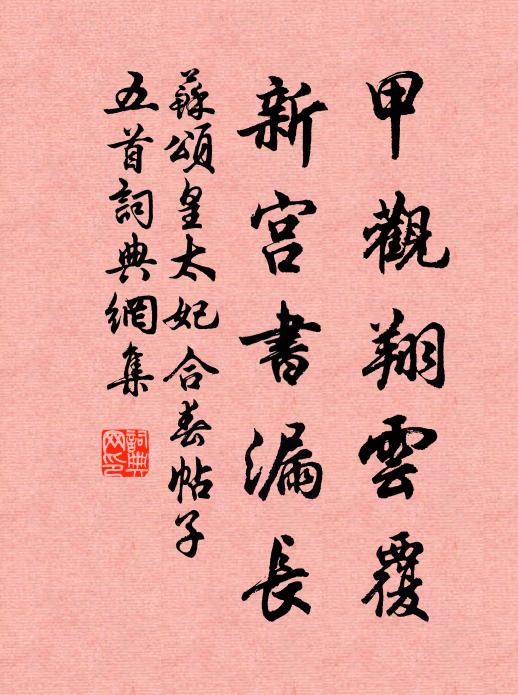 甲觀翔雲覆
新宫書漏長
蘇頌皇太妃合春帖子
五首詞典網集
詞典网印